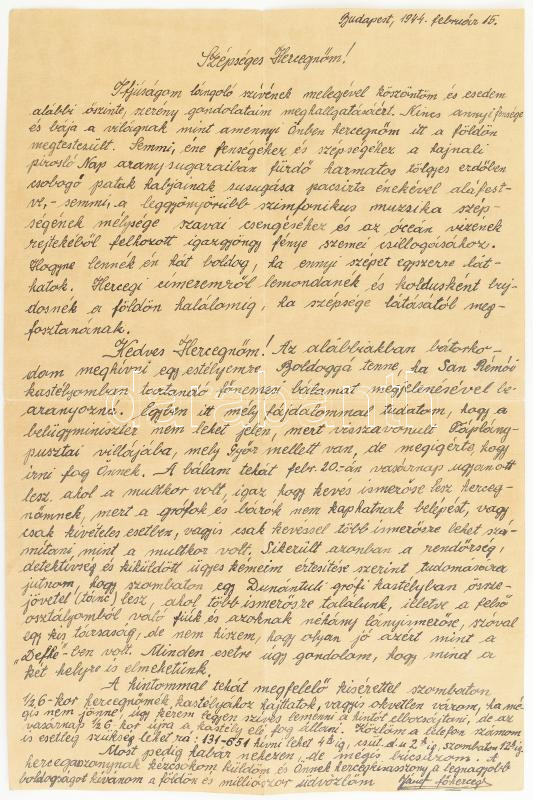 Budapest, 1944. február 15.
Szépséges Hercegnőm!
Ifjúságom lángoló szívének melegével köszöntöm és esedem
alábbi őszinte, szerény gondolataim meghallgatásáért. Nincs annyi fensége
és bája a világnak mint amennyi Önben hercegnőm itt a földön
megtestesült. Semmi, ene fenségéhez és szépségéhez a hajnali
piroslő Nap aranysugaraiban fürdő harmatos tölgyes erdőben
csobogó patak habjainak susugása pacsirta énekével aláfest-
ve, - semmi, a leggyönyörűbb szimfonikus muzsika szép-
ségének mélysége szavai csengéséhez és az óceán vizének
rejtekéből felhozott igazgyöngy fénye szemei csillogásához.
Hogyne lennék én hát boldog, ha ennyi szépet egyszerre lát-
hatok. Hercegi címeremről lemondanék és koldusként buj-
dosnék a földön halálomig, ha szépsége látásától meg-
fosztanának.
Kedves Hercegnőm! Az alábbiakban bátorko-
dom meghívni egy estélyemre. Boldoggá tenne, ha San Rémói
kastélyomban tartandó főnemesi bálamat megjelenésével be-
aranyozná. Egyben itt mély fájdalommal tudatom, hogy a
belügyminiszter nem lehet jelen, mert visszavonult Táplány-
pusztai villájába, mely Győr mellett van, de megígérte, hogy
írni fog Önnek. A bálam tehát febr. 20.-án vasárnap ugyanott
lesz, ahol a multkor volt, igaz, hogy kevés ismerőse lesz herceg-
nőmnek, mert a grófok és bárók nem kaphatnak belépést, vagy
csak kivételes esetben, vagyis csak kevéssel több ismerősre lehet szá-
mítani, mint a multkor volt. Sikerült azonban a rendőrség,
detektívség és kiküldött ügyes kémeim értesítése szerint tudomásomra
jutnom, hogy szombaton egy Dunántúli grófi kastélyban össze-
jövetel (tánc) lesz, ahol több ismerősre találunk, illetve a felső
osztályomból való fiúk és azoknak néhány lányismerőse, szóval
egy kis társaság, de nem hiszem, hogy olyan jó azért mint a
-ben volt. Minden esetre úgy gondolom, hogy mind a
két helyre is elmehetünk.
A hintommal tehát megfelelő kísérettel szombaton
½6-kor hercegnőmék kastélyához hajtatok, vagyis okvetlen várom, ha mé-
gis nem jönne, úgy kérem legyen szíves lemenni a hintót elbocsájtani, de az
vasárnap ½6-kor újra a kastély elé fog állni. Közlöm a telefon számom
is esetleg szükség lehet rá: 131-651 hívni lehet 4h-ig, csüt. d.u 2h ig, szombaton 12h ig.
Most pedig habár nehezen, de mégis búcsúzom. A
hercegasszonynak kézcsókom küldöm és Önnek hercegkisasszony a legnagyobb
boldogságot kívánom a földön és milliószor üdvözlöm József főherceg
darabanth